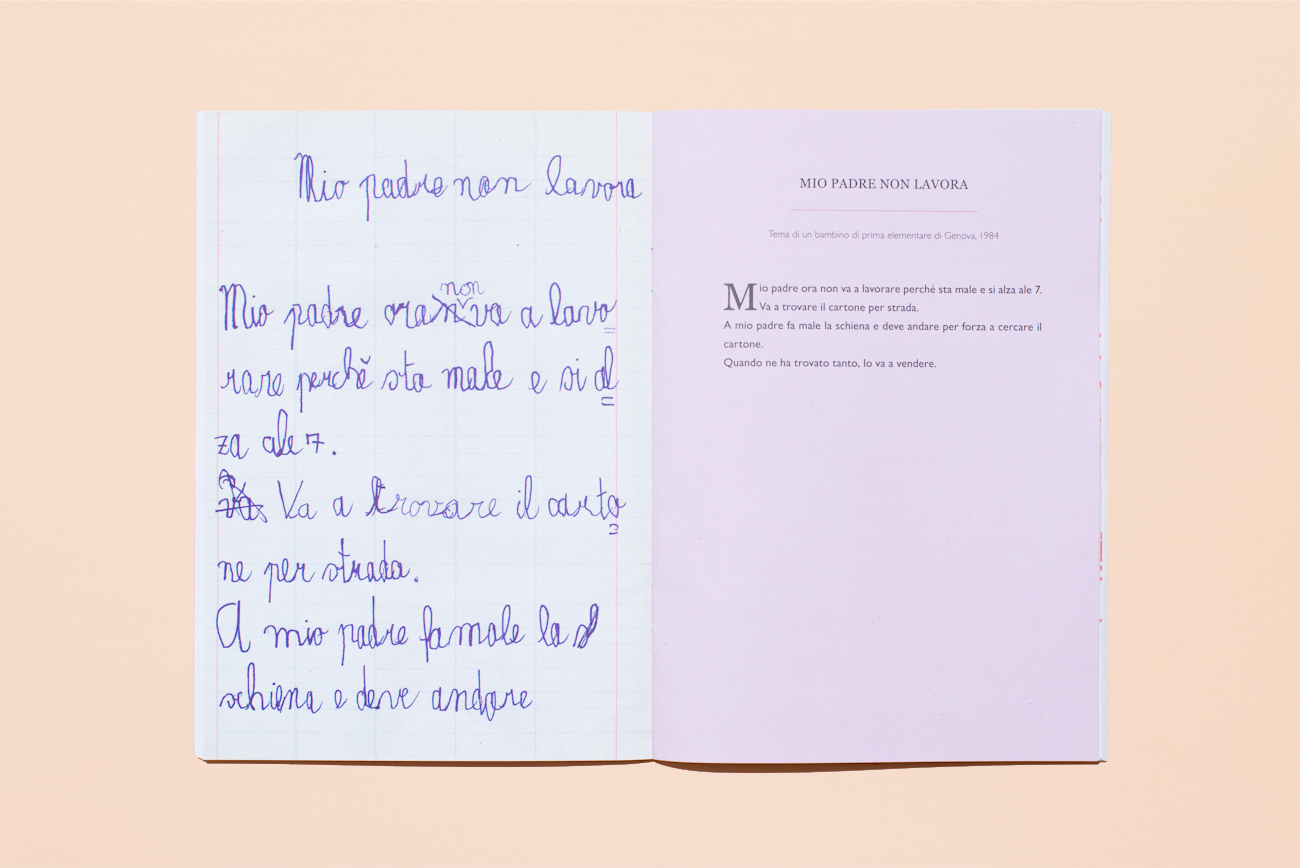 Mio padre non lavora
Mio padre ora non va a lavo
rare perchě sta male e si al
za ale 7.
Va a trovare il carto
ne per strada.
A mio padre fa male la
schiena e deve andare
MIO PADRE NON LAVORA
Tema di un bambino di prima elementare di Genova, 1984
Mio padre ora non va a lavorare perché sta male e si alza ale 7.
Va a trovare il cartone per strada.
A mio padre fa male la schiena e deve andare per forza a cercare il
cartone.
Quando ne ha trovato tanto, lo va a vendere.